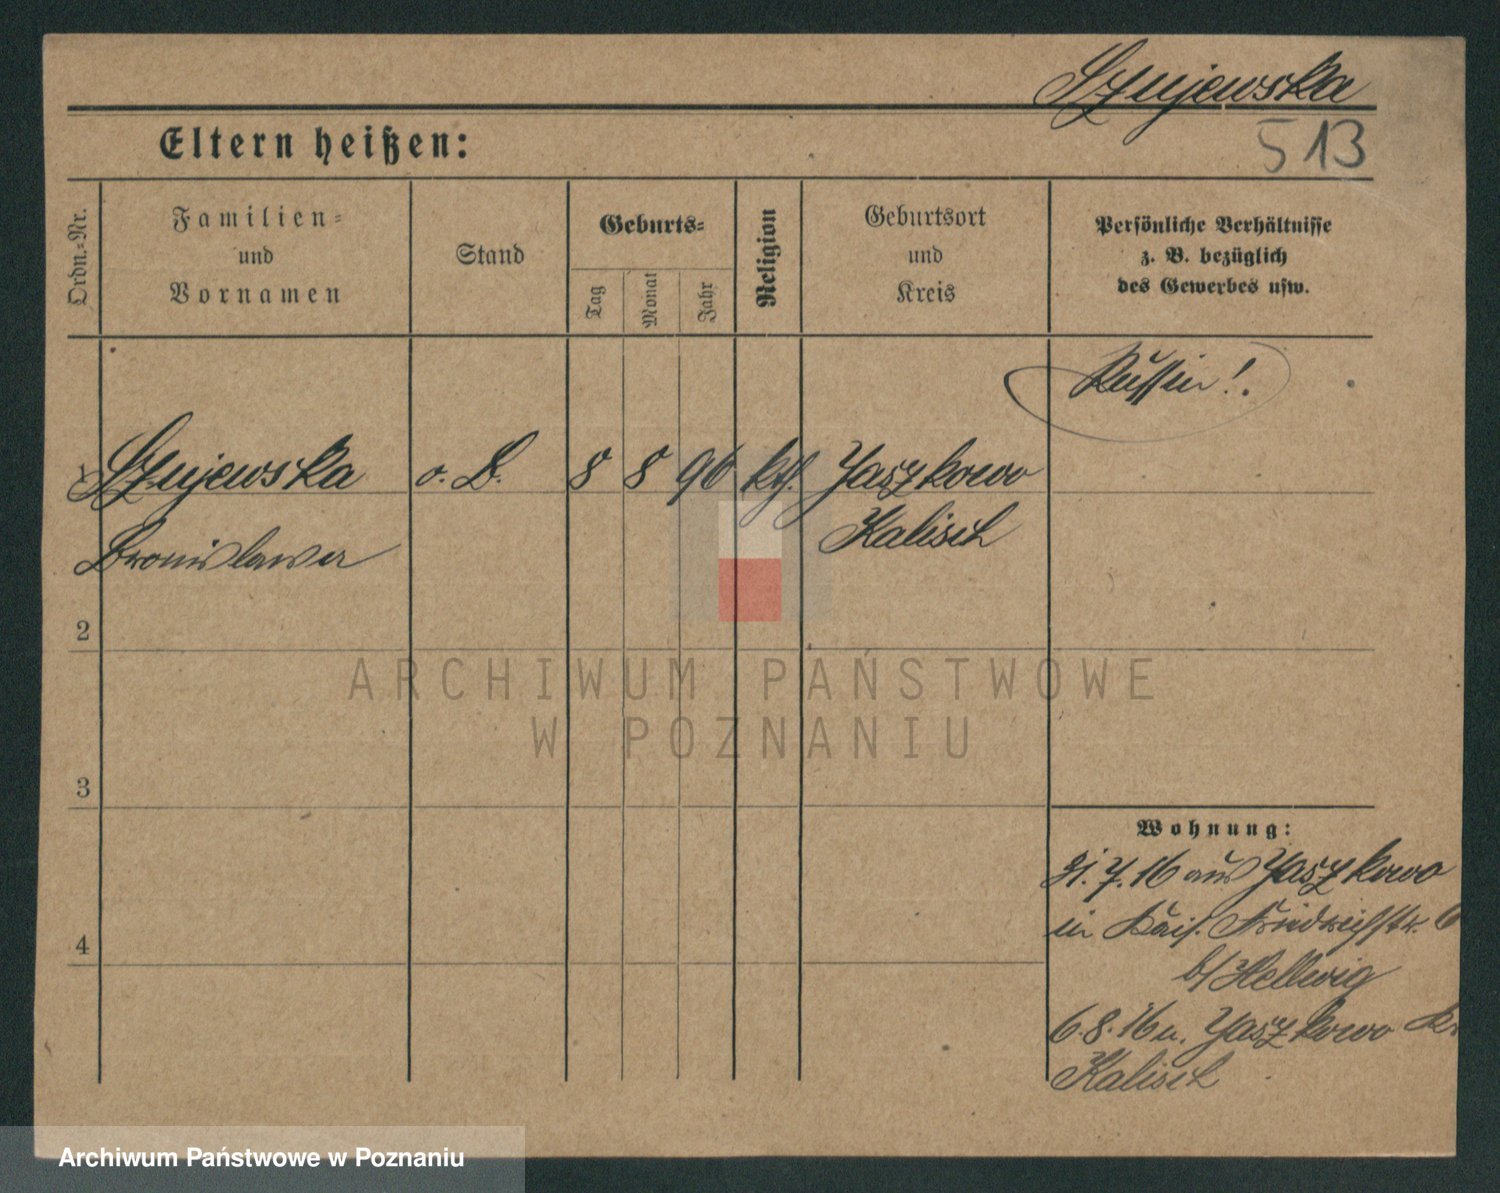 Szujewska
Eltern heißen:
513
Ordn.-Nr.
Familien-
und
Vornamen
Stand
Geburts-
Tag
Monat
Jahr
Religion
Geburtsort
und
Kreis
Persönliche Verhältnisse
z. B. bezüglich
des Gewerbes usw.
Russin!
1 Szujewska o. B. 8 8 96 kth. Jaszkowo
Kalisch
Bronislawa
2
3
4
Wohnung:
31.7.16 aus Jaszkowo
in Kais. Friedrichstr. 6
b/Hellwig
6.8.16 n. Jaszkowo Kr
Kalisch
ARCHIWUM PAŃSTWOWE
W POZNANIU
Archiwum Państwowe w Poznaniu